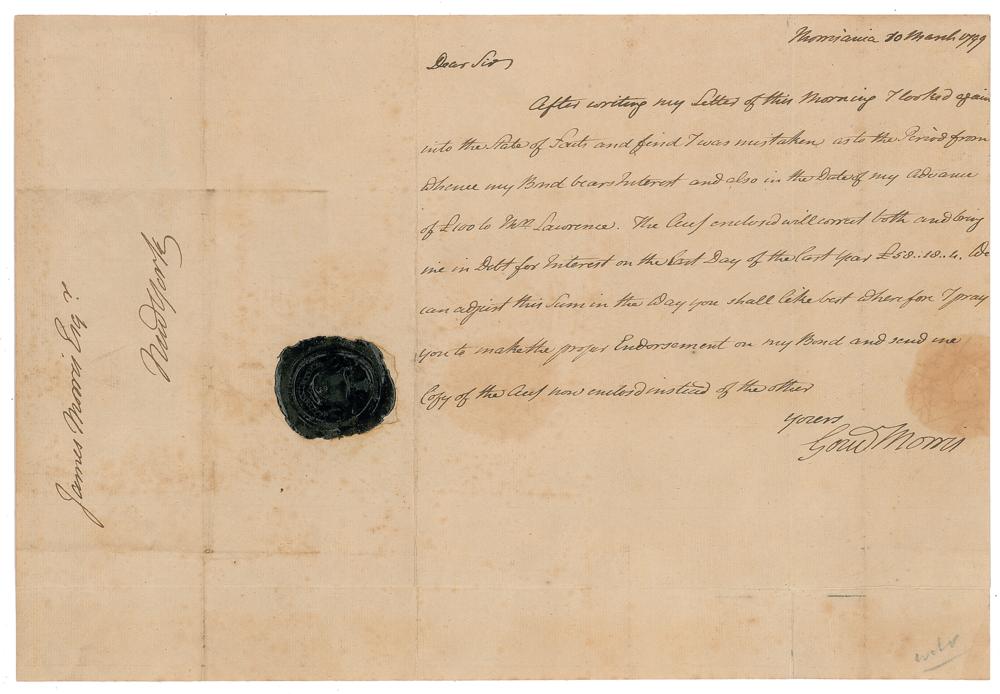 Morrisania 10 March 1799
Dear Sir
After writing my Letter of this Morning I looked again
into the State of Facts and find I was mistaken as to the Period from
whence my Bond bears Interest and also in the Date of my Advance
of £100 to Mrs. Lawrence. The Acct enclosed will correct both and bring
me in Debt for Interest on the last Day of the last Year £58..18..4. We
can adjust this Sum in the Way you shall like best wherefore I pray
you to make the proper Endorsement on my Bond and send me
Copy of the Acct now enclosd instead of the other
yours
Gouv Morris
James Morris Esqr
New York